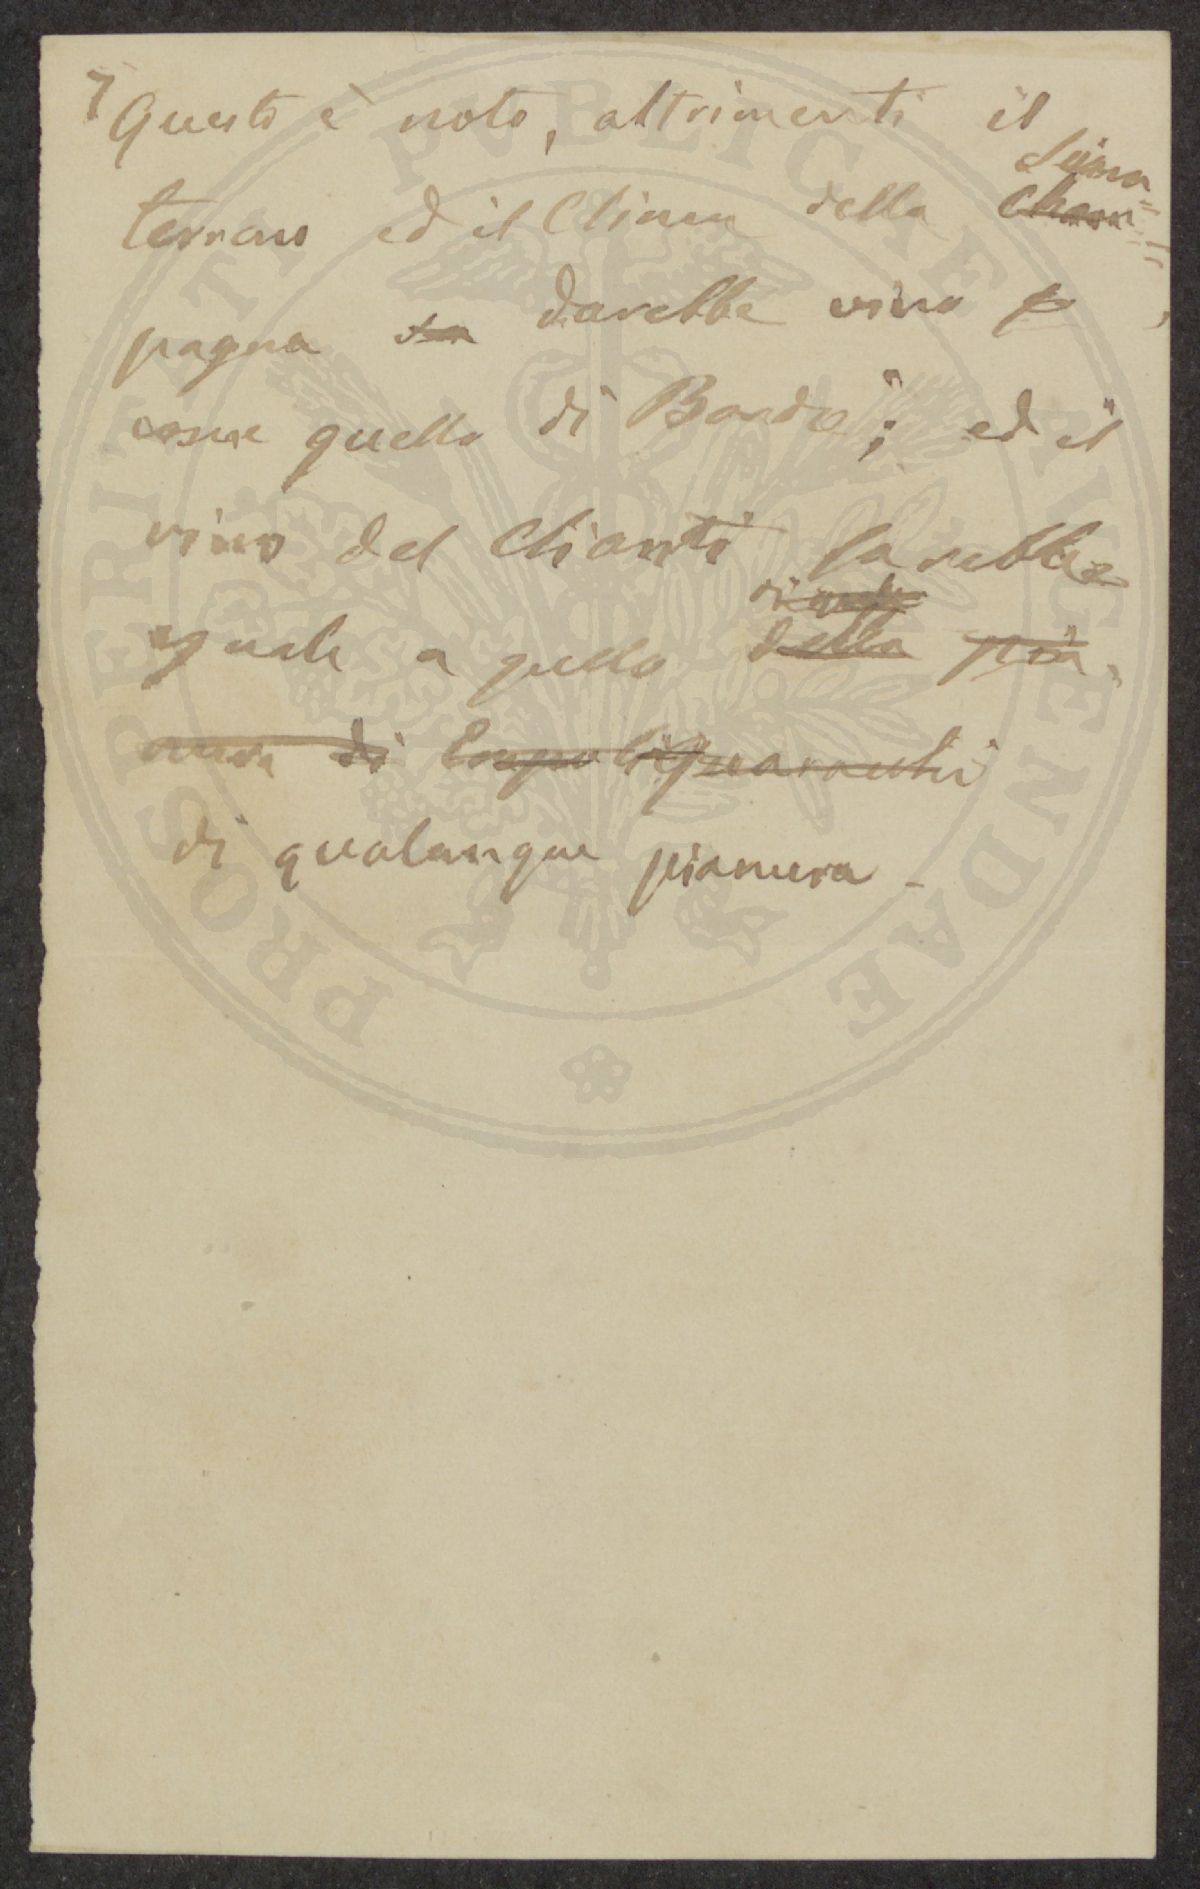 7 Questo è noto, altrimenti il
terreno ed il Clima della Cham=
pagna darebbe vino
come quello di Bordò; ed il
vino del Chianti sarebbe
eguale a quello della pia-
nura di Empoli Quaracchi
di qualunque pianura -
PROSPERITATI PVBLICAE AVGENDAE